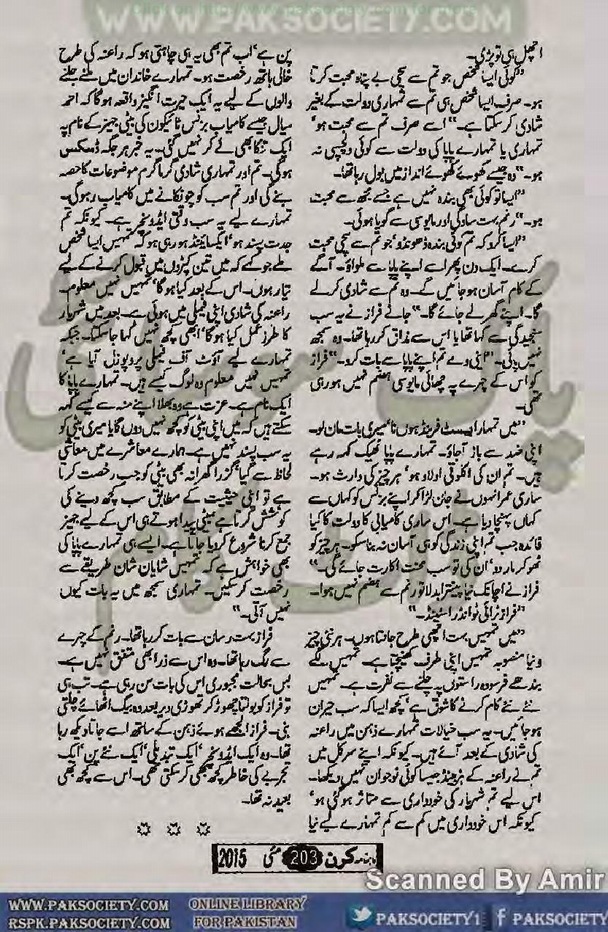 WWW.PAKSOCIETY.COM
اچھل ہی تو پڑی۔
"کوئی ایسا شخص جو تم سے سچی بے پناہ محبت کرتا
ہو۔ صرف ایسا شخص ہی تم سے تمہاری دولت کے بغیر
شادی کرسکتا ہے۔" "اسے صرف تم سے محبت ہو'
تمہاری یا تمہارے پاپا کی دولت سے کوئی دلچسپی نہ
ہو۔" وہ جیسے کھوئے کھوئے انداز میں بول رہا تھا۔
"ایسا تو کوئی بھی بندہ نہیں ہے جسے مجھ سے محبت
ہو۔" رنم بہت سادگی اور مایوسی سے گویا ہوئی۔
"ایسا کرو کہ تم کوئی بندہ ڈھونڈو' جو تم سے سچی محبت
کرے۔ ایک دن پھر اسے اپنے پاپا سے ملواؤ۔ آگے
کے کام آسان ہو جائیں گے۔ وہ تم سے شادی کرلے
گا۔ اپنے گھر لے جائے گا۔" جانے فراز نے یہ سب
سنجیدگی سے کہا تھا یا اس سے مذاق کررہا تھا۔ وہ سمجھ
نہیں پائی۔ "اپنی وے تم اپنے پاپا سے بات کرو۔" فراز
کو اس کے چہرے پہ چھائی مایوسی ہضم نہیں ہو رہی
تھی۔
"میں تمہارا بیسٹ فرینڈ ہوں نا' میری بات مان لو۔
اپنی ضد سے باز آجاؤ۔ تمہارے پاپا ٹھیک کہہ رہے
ہیں۔ تم ان کی اکلوتی اولاد ہو' ہر چیز کی وارث ہو۔
ساری عمر انہوں نے جان لڑا کر اپنے بزنس کو کہاں سے
کہاں پہنچا دیا ہے۔ اس ساری کامیابی کا دولت کا کیا
فائدہ جب تم اپنی زندگی کو ہی آسان نہ بنا سکو۔ ہر چیز کو
ٹھوکر مار دو' ان کی تو سب محنت اکارت جائے گی۔"
فراز نے اچانک نیا پینترا بدلا تو رنم سے ہضم نہیں ہوا۔
"فراز ٹرائی ٹو انڈراسٹینڈ۔"
"میں تمہیں بہت اچھی طرح جانتا ہوں۔ ہر نئی چیز
و نیا منصوبہ تمہیں اپنی طرف کھینچتا ہے۔ تمہیں لگے
بندھے فرسودہ راستوں پہ چلنے سے نفرت ہے۔ تمہیں
نئے نئے کام کرنے کا شوق ہے' کچھ ایسا کہ سب حیران
ہو جائیں۔ یہ سب خیالات تمہارے ذہن میں راعنہ
کی شادی کے بعد آئے ہیں۔ کیونکہ اپنے سرکل میں
تم نے راعنہ کے ہزبینڈ جیسا کوئی نوجوان نہیں دیکھا۔
اس لیے تم شہریار کی خودداری سے متاثر ہوگئی ہو'
کیونکہ اس خودداری میں کم سے کم تمہارے لیے نیا
پن ہے' اب تم بھی یہ ہی چاہتی ہو کہ راعنہ کی طرح
خالی ہاتھ رخصت ہو۔ تمہارے خاندان میں ملنے جلنے
والوں کے لیے یہ ایک حیرت انگیز واقعہ ہوگا کہ احمد
سیال جیسے کامیاب بزنس ٹائیکون کی بیٹی جہیز کے نام پہ
ایک تنکا بھی لے کر نہیں گئی۔ یہ خبر ہر جگہ ڈسکس
ہوگی۔ تم اور تمہاری شادی گرما گرم موضوعات کا حصہ
بنے گی اور تم سب کو چونکانے میں کامیاب رہوگی۔
تمہارے لیے یہ سب وقتی ایڈونچر ہے۔ کیونکہ تم
جدت پسند ہو' ایکسائیٹڈ ہو رہی ہو کہ تمہیں ایسا شخص
ملے جو کہ میں تین کپڑوں میں قبول کرنے کے لیے
تیار ہوں۔ اس کے بعد کیا ہوگا' تمہیں نہیں معلوم۔
راعنہ کی شادی اپنی فیملی میں ہوئی ہے۔ بعد میں شہریار
کا طرز عمل کیا ہوگا' ابھی کچھ نہیں کہا جاسکتا۔ جبکہ
تمہارے لیے آؤٹ آف فیملی پروپوزل آیا ہے'
تمہیں نہیں معلوم وہ لوگ کیسے ہیں۔ تمہارے پاپا کا
ایک نام ہے۔ عزت ہے وہ بھلا اپنے منہ سے کیسے کہہ
سکتے ہیں کہ میں اپنی بیٹی کو کچھ نہیں دوں گا یا میری بیٹی کو
یہ سب پسند نہیں ہے۔ ہمارے معاشرے میں معاشی
لحاظ سے گیا گزرا گھرانہ بھی بیٹی کو جب رخصت کرتا
ہے تو اپنی حیثیت کے مطابق سب کچھ دینے کی
کوشش کرتا ہے' بیٹی پیدا ہوتے ہی اس کے لیے جہیز
جمع کرنا شروع کردیا جاتا ہے۔ ایسے ہی تمہارے پاپا کی
بھی خواہش ہے کہ تمہیں شایان شان طریقے سے
رخصت کرسکیں۔ تمہاری سمجھ میں یہ بات کیوں
نہیں آتی۔"
فراز بہت رسان سے بات کررہا تھا۔ رنم کے چہرے
سے لگ رہا تھا۔ وہ اس سے ذرا بھی متفق نہیں ہے۔
بس بحالت مجبوری اس کی بات سن رہی ہے۔ تب ہی
تو فراز کو بولتا چھوڑ کر تھوڑی دیر بعد وہ بیگ اٹھائے چلتی
بنی۔ فراز الجھے ہوئے ذہن کے ساتھ اسے جاتا دیکھ رہا
تھا۔ وہ ایک ایڈونچر' ایک تبدیلی' ایک نئے پن' ایک
تجربے کی خاطر کچھ بھی کرسکتی تھی۔ اس سے کچھ بھی
بعید نہ تھا۔
☼ ☼ ☼
ماہنامہ کرن 203 مئی 2015
Scanned By Amir
WWW.PAKSOCIETY.COM ONLINE LIBRARY PAKSOCIETY1 PAKSOCIETY
RSPK.PAKSOCIETY.COM FOR PAKISTAN